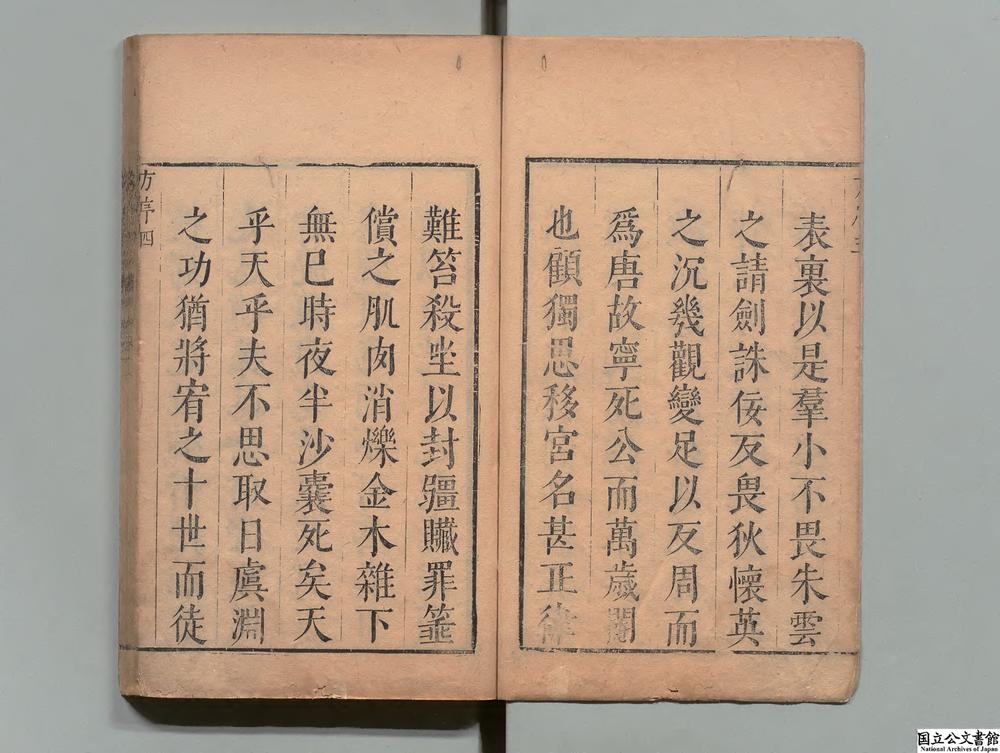 表裏以是羣小不畏朱雲
之請劍誅佞反畏狄懷英
之沉幾觀變足以反周而
爲唐故寧死公而萬歲闇
也顧獨思移宮名甚正律
難笞殺坐以封疆贓罪箠
償之肌肉消爍金木雜下
無已時夜半沙囊死矣天
乎天乎夫不思取日虞淵
之功猶將宥之十世而徒
方序四
国立公文書館
National Archives of Japan